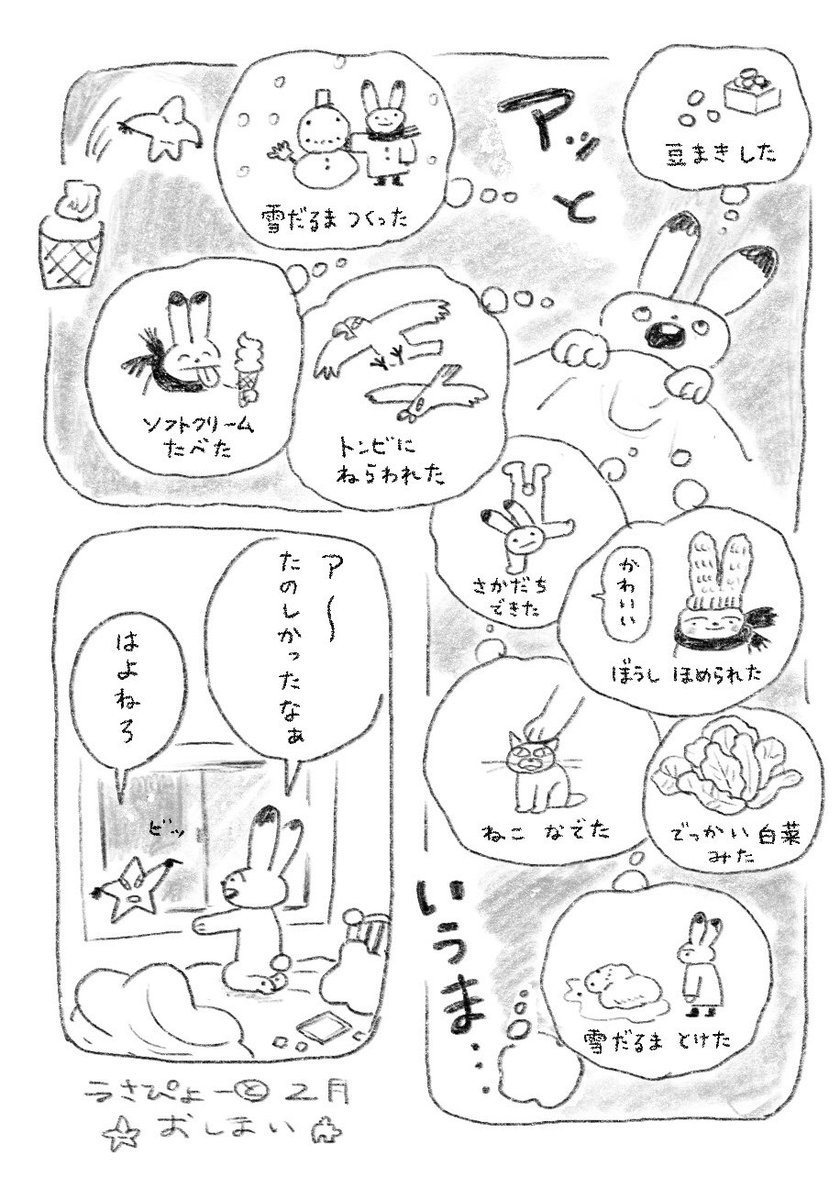 アッと
豆まきした
雪だるま つくった
トンビに
ねらわれた
ソフトクリーム
たべた
さかだち
できた
かわいい
ぼうし ほめられた
ねこ なでた
でっかい 白菜
みた
雪だるま とけた
いうま…
ア〜
たのしかったなぁ
はよねろ
ビッ
うさぴょーと 2月
おしまい